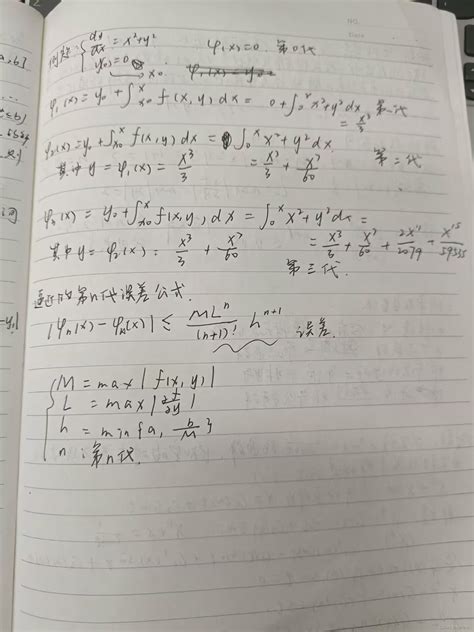 例题: { dy/dx = x²+y²   φ₀(x)=0. 第0代
y(0)=0   x₀
φ₁(x) = y₀ + ∫ₓ₀ˣ f(x,y)dx = 0 + ∫₀ˣ x²+y²dx 第一代
= x³/3
φ₂(x) = y₀ + ∫ₓ₀ˣ f(x,y)dx = ∫₀ˣ x²+y²dx.
其中 y = φ₁(x) = x³/3   = x³/3 + x⁷/60   第二代
φₙ(x) = y₀ + ∫ₓ₀ˣ f(x,y)dx = ∫₀ˣ x²+y²dx =
其中 y = φ₂(x) = x³/3 + x⁷/60   = x³/3 + x⁷/60 + 2x¹¹/2079 + x¹⁵/59535
第三代.
第n代误差公式.
|φₙ(x) - φ(x)| ≤ MLⁿ/(n+1)! hⁿ⁺¹   误差.
{ M = max|f(x,y)|
L = max|∂f/∂y|
h = min{a, b/M}
n : 第n代.